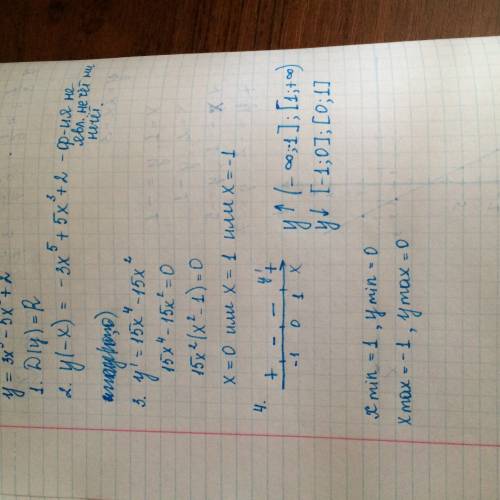 y = 3x⁵ - 5x³ + 2
1. D(y) = R
2. y(-x) = -3x⁵ + 5x³ + 2 - ф-ия не
явл. не чёт ни
нечёт.
3. y' = 15x⁴ - 15x²
15x⁴ - 15x² = 0
15x² (x² - 1) = 0
x = 0 или x = 1 или x = -1
4. + - - + y'
-1 0 1 x
y↑ (-∞; -1]; [1; +∞)
y↓ [-1; 0]; [0; 1]
x min = 1, y min = 0
x max = -1, y max = 0